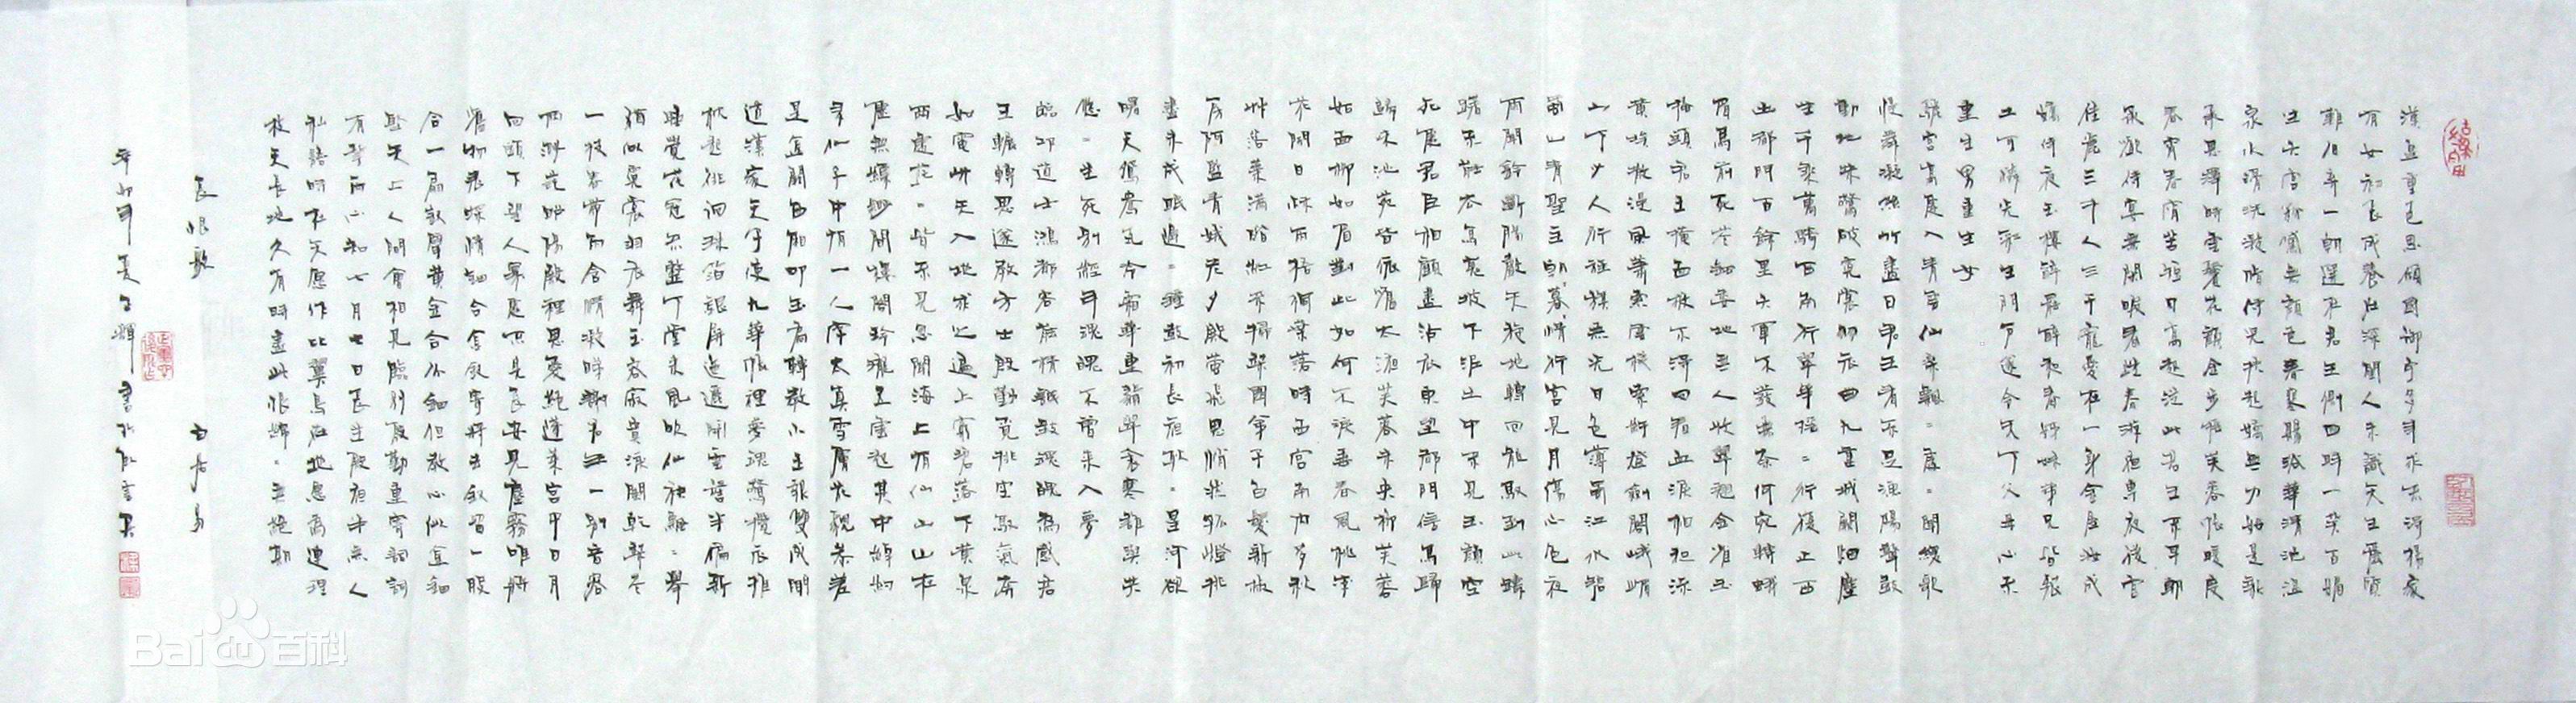 漢皇重色思傾國御宇多年求不得楊家
有女初長成養在深閨人未識天生麗質
難自棄一朝選在君王側回眸一笑百媚
生六宮粉黛無顏色春寒賜浴華清池溫
泉水滑洗凝脂侍兒扶起嬌無力始是新
承恩澤時雲鬢花顏金步搖芙蓉帳暖度
春宵春宵苦短日高起從此君王不早朝
承歡侍宴無閑暇春從春游夜專夜後宮
佳麗三千人三千寵愛在一身金屋妝成
嬌侍夜玉樓宴罷醉和春姊妹弟兄皆列
土可憐光彩生門戶遂令天下父母心不
重生男重生女
驪宮高處入青雲仙樂飄〻處〻聞緩歌
慢舞凝絲竹盡日君王看不足漁陽鼙鼓
動地來驚破霓裳羽衣曲九重城闕煙塵
生千乘萬騎西南行翠華搖〻行復止西
出都門百餘里六軍不發無奈何宛轉蛾
眉馬前死花鈿委地無人收翠翹金雀玉
搔頭君王掩面救不得回看血淚相和流
黃埃散漫風蕭索雲棧縈紆登劍閣峨嵋
山下少人行旌旗無光日色薄蜀江水碧
蜀山青聖主朝暮情行宮見月傷心色夜
雨聞鈴斷腸聲天旋地轉回龍馭到此躊
躇不能去馬嵬坡下泥土中不見玉顏空
死處君臣相顧盡沾衣東望都門信馬歸
歸來池苑皆依舊太液芙蓉未央柳芙蓉
如面柳如眉對此如何不淚垂春風桃李
花開日秋雨梧桐葉落時西宮南內多秋
草落葉滿階紅不掃梨園弟子白髮新椒
房阿監青娥老夕殿螢飛思悄然孤燈挑
盡未成眠遲〻鐘鼓初長夜耿〻星河欲
曙天鴛鴦瓦冷霜華重翡翠衾寒誰與共
悠〻生死別經年魂魄不曾來入夢
臨邛道士鴻都客能精誠致魂魄為感君
王輾轉思遂教方士殷勤覓排空馭氣奔
如電升天入地求之遍上窮碧落下黃泉
兩處茫〻皆不見忽聞海上有仙山山在
虛無縹緲間樓閣玲瓏五雲起其中綽約
多仙子中有一人字太真雪膚花貌參差
是金闕西廂叩玉扃轉教小玉報雙成聞
道漢家天子使九華帳裡夢魂驚攬衣推
枕起徘徊珠箔銀屏迤邐開雲鬢半偏新
睡覺花冠不整下堂來風吹仙袂飄〻舉
猶似霓裳羽衣舞玉容寂寞淚闌乾梨花
一枝春帶雨含情凝睇謝君王一別音容
兩渺茫昭陽殿裡恩愛絕蓬萊宮中日月
回頭下望人寰處不見長安見塵霧唯將
舊物表深情鈿合金釵寄將去釵留一股
合一扇釵擘黃金合分鈿但教心似金鈿
堅天上人間會相見臨別殷勤重寄詞詞
有誓兩心知七月七日長生殿夜半無人
私語時在天愿作比翼鳥在地愿為連理
枝天長地久有時盡此恨綿〻無絕期
長恨歌 白居易
辛卯年夏 輝書於
Baidu百科